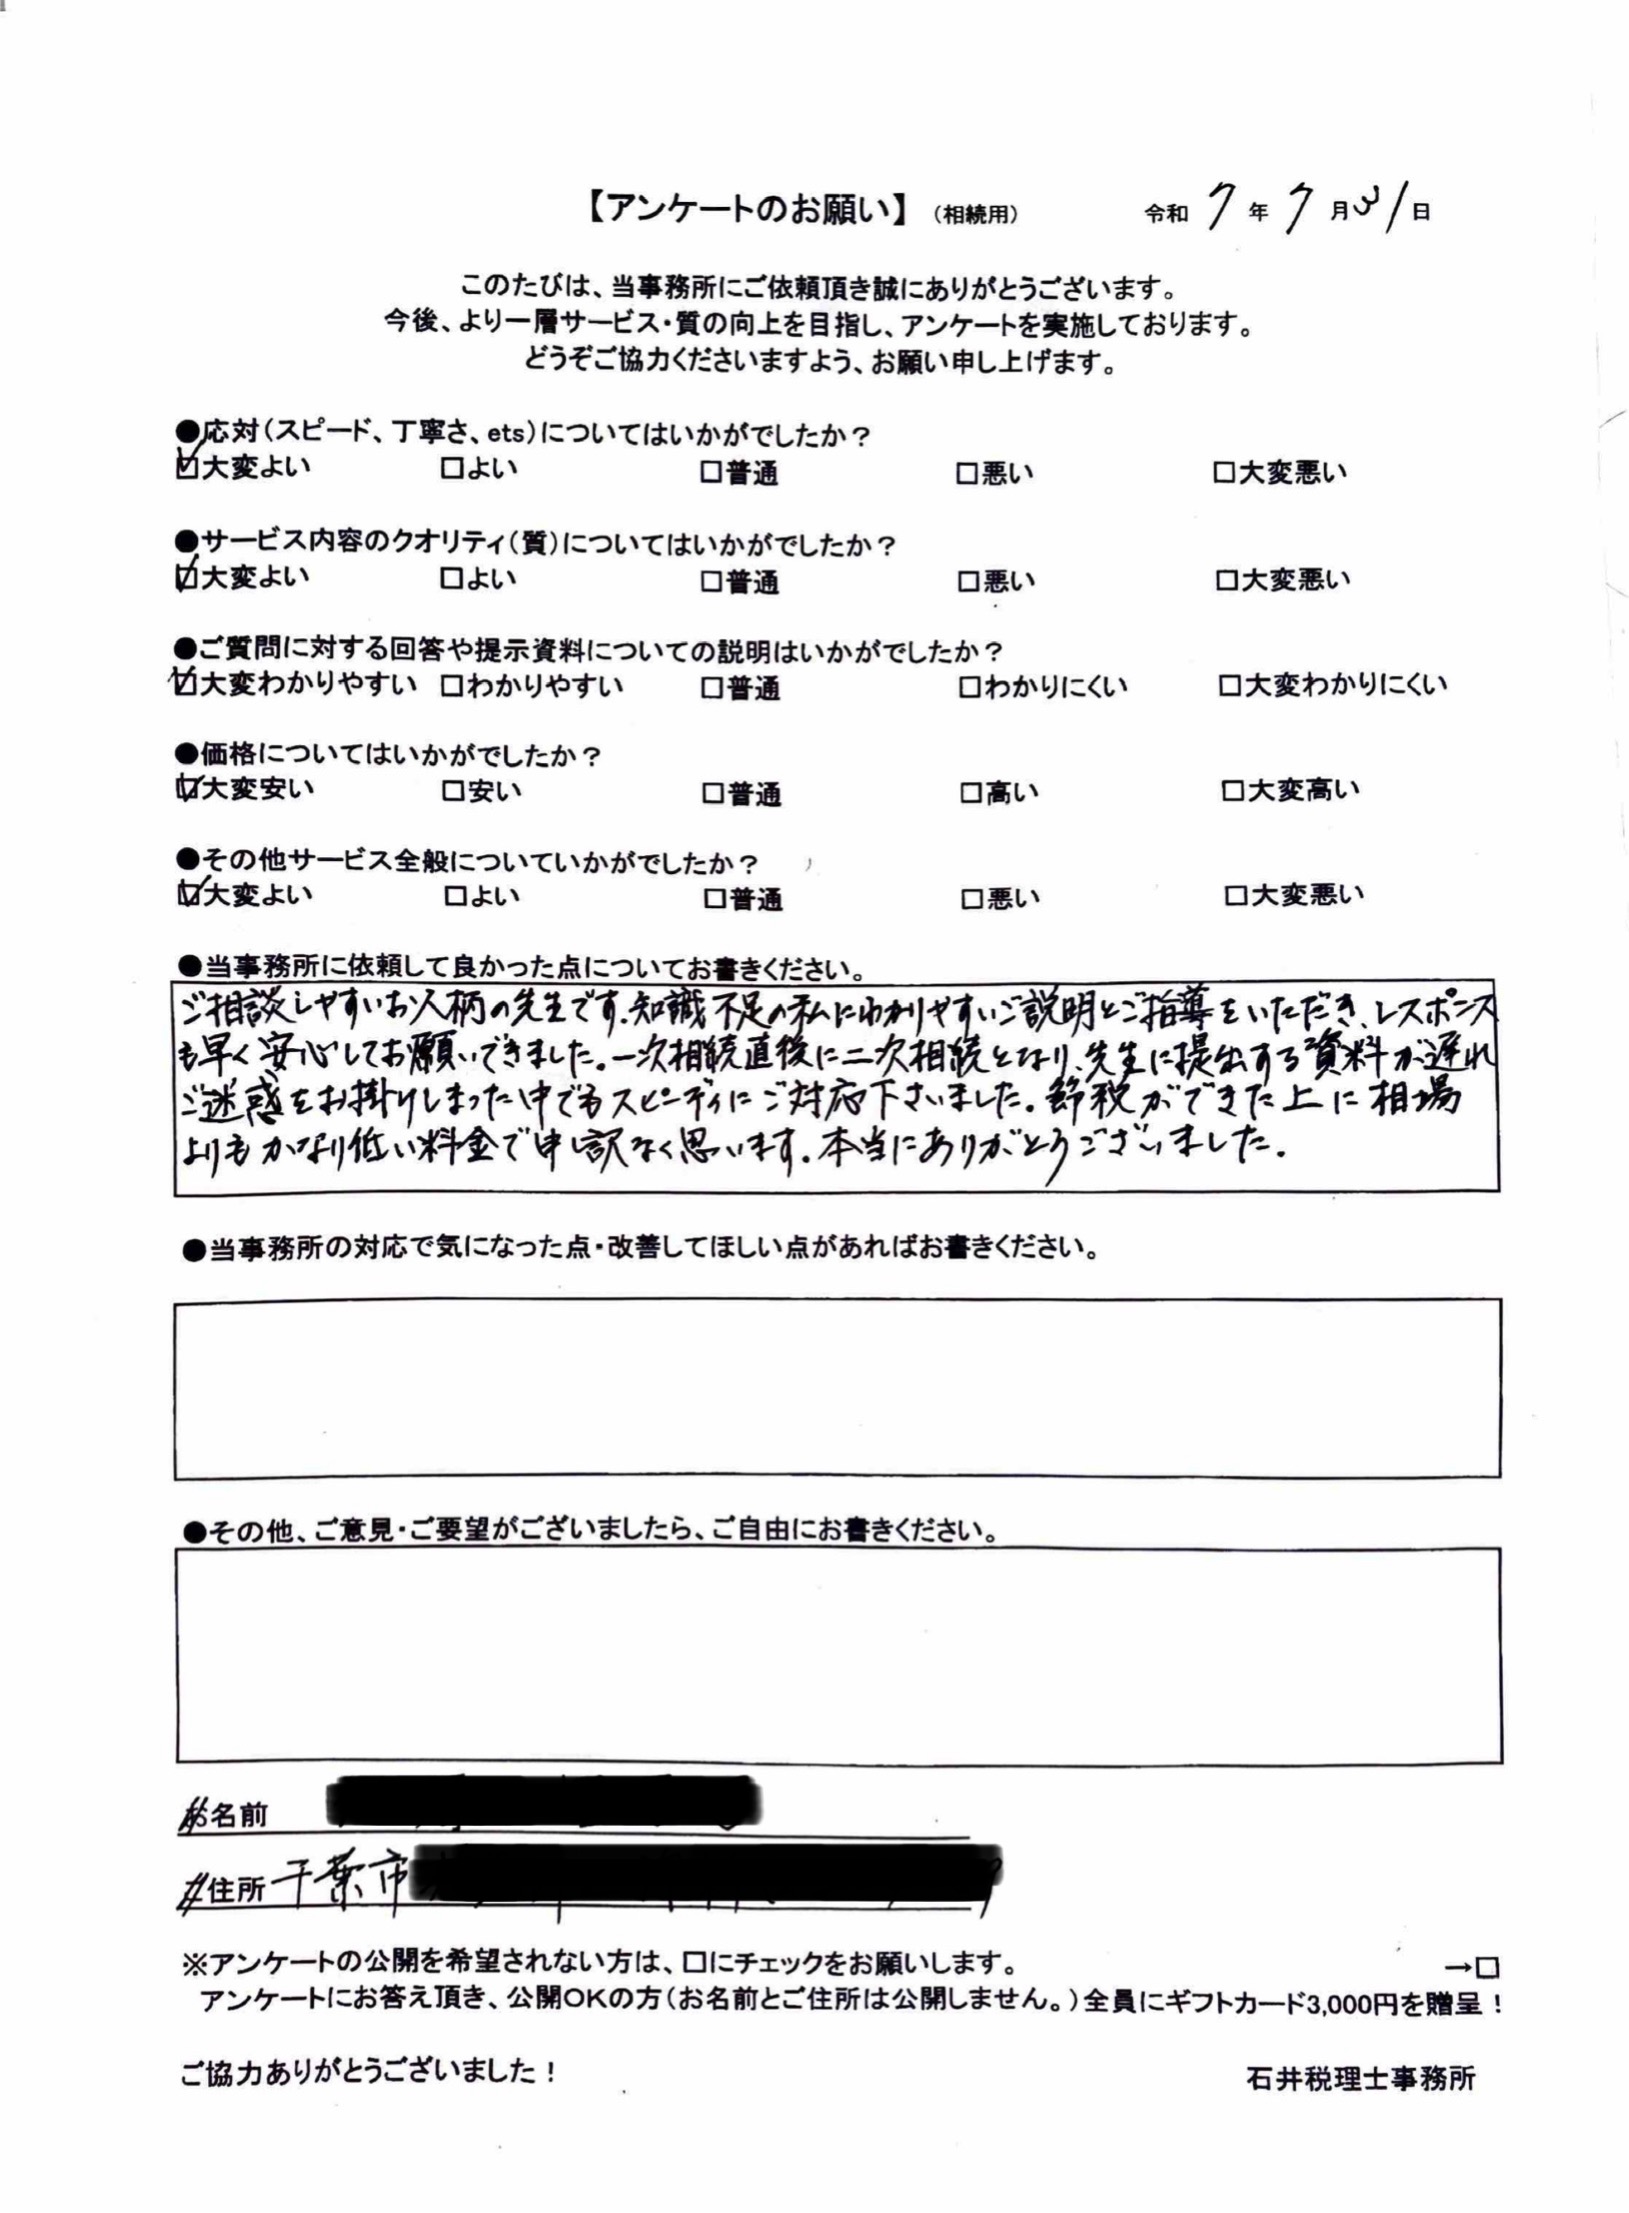 【アンケートのお願い】（相続用） 令和 7 年 7 月 31 日
このたびは、当事務所にご依頼頂き誠にありがとうございます。
今後、より一層サービス・質の向上を目指し、アンケートを実施しております。
どうぞご協力くださいますよう、お願い申し上げます。
●応対（スピード、丁寧さ、ets）についてはいかがでしたか？
☑大変よい □よい □普通 □悪い □大変悪い
●サービス内容のクオリティ（質）についてはいかがでしたか？
☑大変よい □よい □普通 □悪い □大変悪い
●ご質問に対する回答や提示資料についての説明はいかがでしたか？
☑大変わかりやすい □わかりやすい □普通 □わかりにくい □大変わかりにくい
●価格についてはいかがでしたか？
☑大変安い □安い □普通 □高い □大変高い
●その他サービス全般についていかがでしたか？
☑大変よい □よい □普通 □悪い □大変悪い
●当事務所に依頼して良かった点についてお書きください。
ご相談しやすいお人柄の先生です。知識不足の私にわかりやすいご説明とご指導をいただき、レスポンス
も早く安心してお願いできました。一次相続直後に二次相続となり、先生に提出する資料が遅れ
ご迷惑をお掛けしまった中でもスピーディにご対応下さいました。節税ができた上に相場
よりもかなり低い料金で申し訳なく思います。本当にありがとうございました。
●当事務所の対応で気になった点・改善してほしい点があればお書きください。
●その他、ご意見・ご要望がございましたら、ご自由にお書きください。
お名前
ご住所 千葉市
※アンケートの公開を希望されない方は、□にチェックをお願いします。 →□
アンケートにお答え頂き、公開OKの方（お名前とご住所は公開しません。）全員にギフトカード3,000円を贈呈！
ご協力ありがとうございました！ 石井税理士事務所